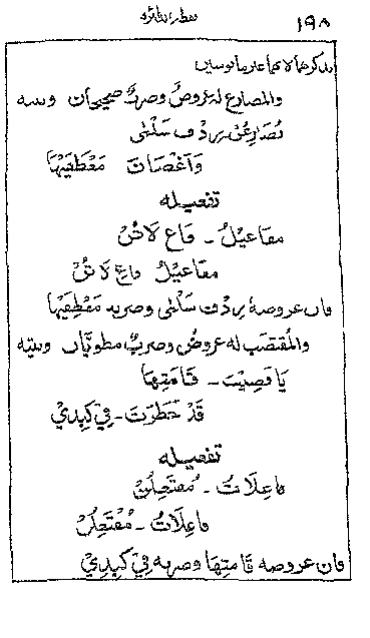 ١٩٨
يذكرهما لانهما غير مانوسين
والمضارع له عروض وضرب صحيحان وبيته
تُضَارِعُنِ بِرِدْفِ سَلْمَى
وَاَغْصَان مَعْطَفَيْهَا
تفعيله
مفاعيلُ - فَاعِ لَاتُنْ
مفاعيلُ فاعِ لَاتُنْ
فان عروضه بِرِدْفِ سَلْمَى وضربه مَعْطِفَيْهَا
والمُقتضَب له عروض وضربٌ مطويّان وبيته
يَا قَضِيْبَ - قَامَتِهَا
قَدْ خَطَرْتَ - فِيْ كَبِدِيْ
تفعيله
فاعِلَاتُ - مُفتَعِلُنْ
فاعِلَاتُ - مُفْتَعِلُنْ
فان عروضه قَامَتِهَا وضربه فِيْ كَبِدِيْ